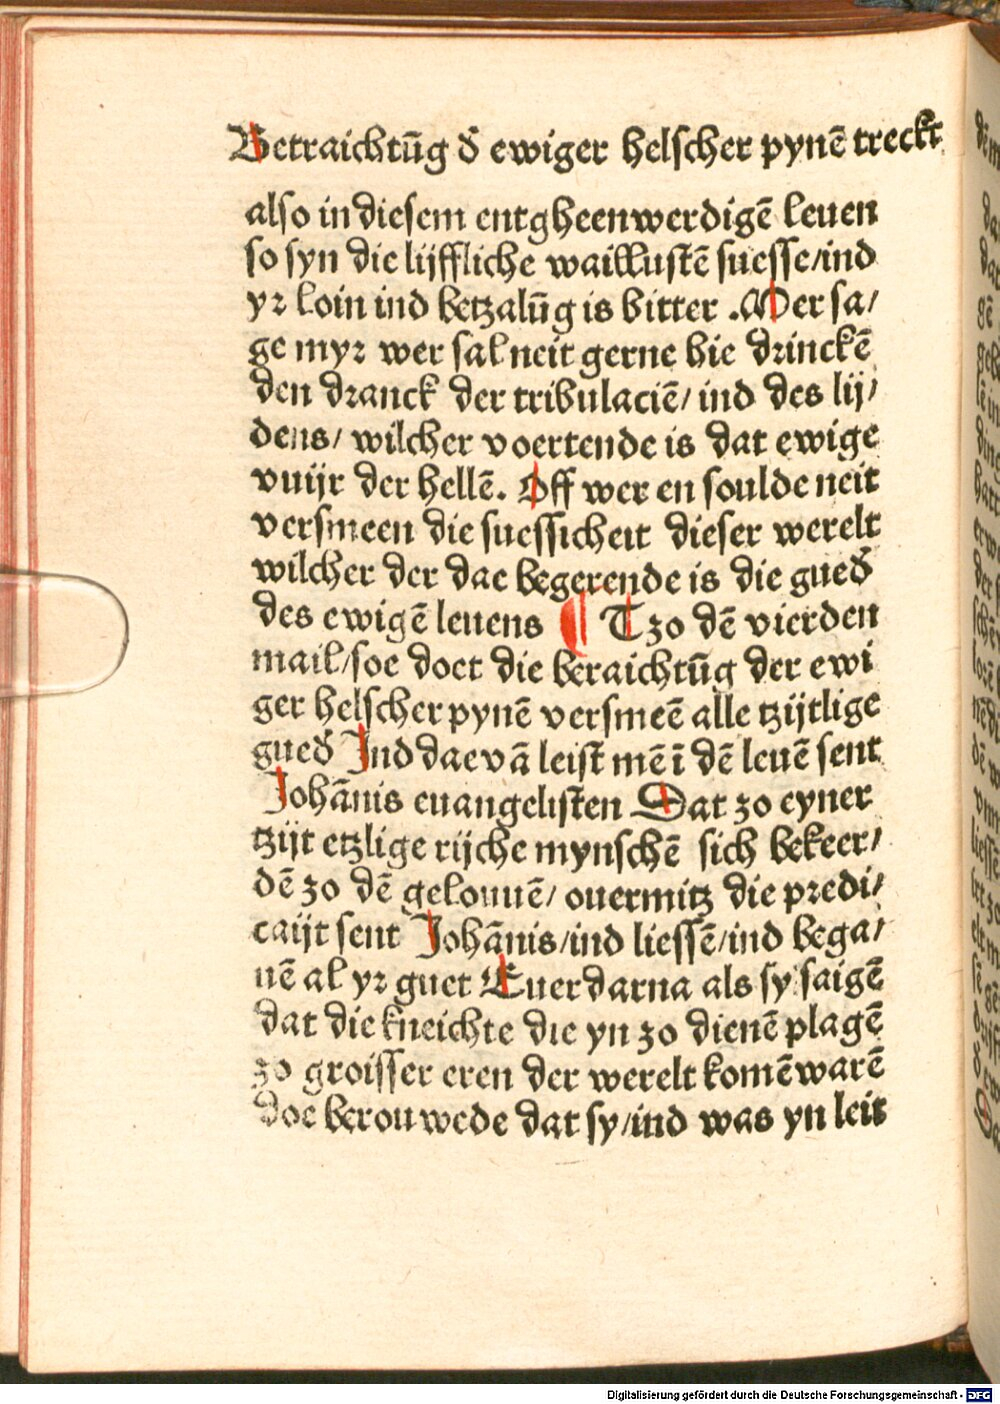 Betraichtūg d̕ ewiger helscher pynē treckt
also in diesem entgheenwerdigē leuen
so syn die lijffliche waillustē suesse/ind
yr loin ind betzalūg is bitter .Mer sa/
ge myr wer sal neit gerne hie drinckē
den dranck der tribulaciē/ ind des lij/
dens/ wilcher voertende is dat ewige
vuijr der hellē. Off wer en soulde neit
versmeen die suessicheit dieser werelt
wilcher der dae begerende is die gued̕
des ewigē leuens ¶ Tzo dē vierden
mail/soe doet die beraichtūg der ewi
ger helscher pynē versmeē alle tzijtlige
gued̕ Ind dae vā leist mē ī dē leuē sent
Johānis euangelisten Dat zo eyner
tzijt etzlige rijche mynschē sich bekeer/
dē zo dē gelouuē/ ouermitz die predi/
caijt sent Johānis/ind liessē/ind bega/
uē al yr guet Euer darna als sy saigē
dat die kneichte die yn zo dienē plagē
zo groisser eren der werelt komē warē
doe berouwede dat sy/ind was yn leit
Digitalisierung gefördert durch die Deutsche Forschungsgemeinschaft - DFG